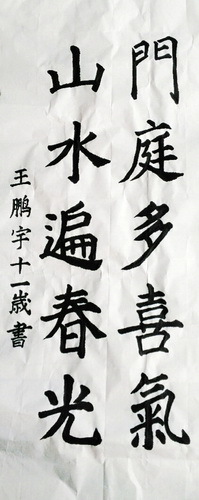 門庭多喜氣
山水遍春光
王鹏宇十一歲書